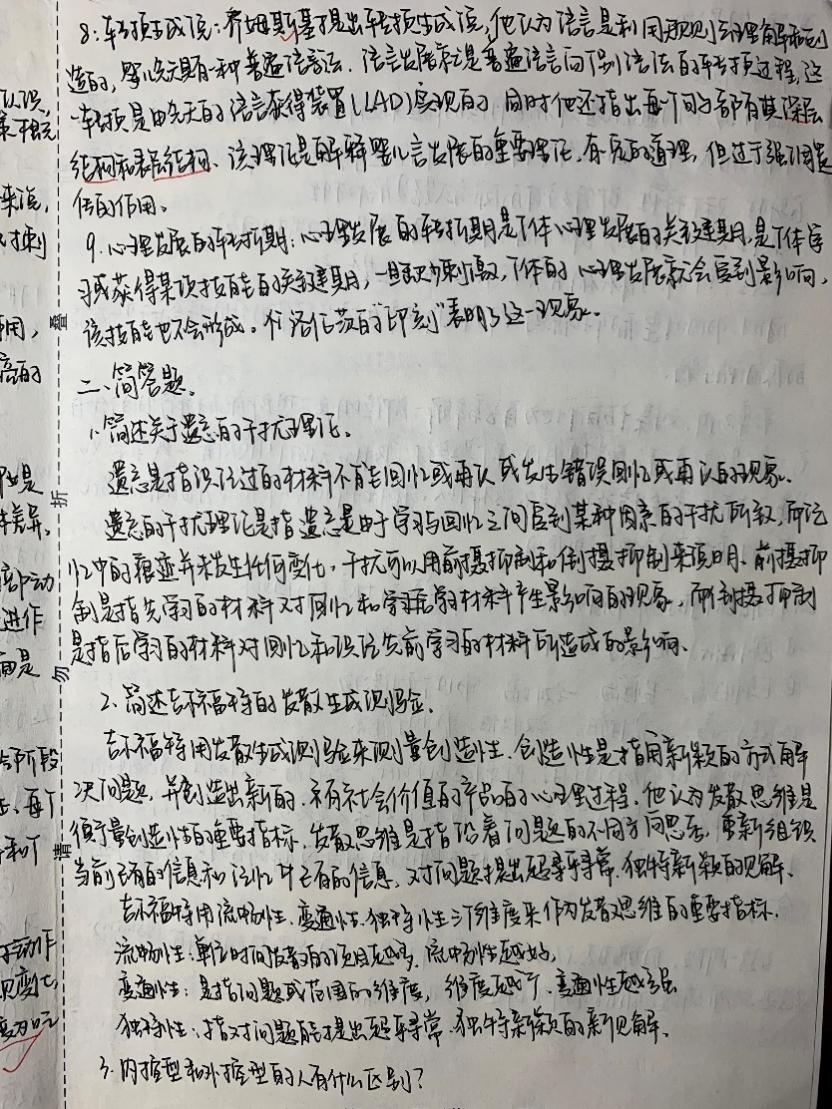 8. 转换生成说：乔姆斯基提出转换生成说，他认为语言是利用规则去理解和创
造的，婴儿先天具有一种普遍语法。语言发展就是普遍语言向个别语法的转换过程，这
一转换是由先天的语言获得装置(LAD)实现的。同时他还指出每一个句子都有其深层
结构和表层结构。该理论是解释婴儿言发展的重要理论，有一定的道理，但过于强调遗
传的作用。
9. 心理发展的转折期：心理发展的转折期是个体心理发展的关键期，是个体学
习或获得某项技能的关键期，一旦缺少刺激，个体的心理发展就会受到影响，
该技能也不会形成。洛伦茨的"印刻"表明了这一现象。
二、简答题。
1. 简述关于遗忘的干扰理论。
遗忘是指识记过的材料不能回忆或再认或发生错误回忆或再认的现象。
遗忘的干扰理论是指遗忘是由于学习与回忆之间受到某种因素的干扰所致，而记
忆中的痕迹并未发生任何变化。干扰可以用前摄抑制和倒摄抑制来说明。前摄抑
制是指先学习的材料对回忆和学习后学材料产生影响的现象，而倒摄抑制
是指后学习的材料对回忆和识记先前学习的材料所造成的影响。
2. 简述吉尔福特的发散生成测验。
吉尔福特用发散生成测验来测量创造性。创造性是指用新颖的方式解
决问题，并创造出新的、有社会价值的产品的心理过程。他认为发散思维是
衡量创造性的重要指标。发散思维是指沿着问题的不同方向思考，重新组织
当前已有的信息和记忆中已有的信息，对问题提出超乎寻常、独特新颖的见解。
吉尔福特用流畅性、变通性、独特性三个维度来作为发散思维的重要指标。
流畅性：单位时间发散的项目越多，流畅性越好。
变通性：是指问题或范围的维度，维度越广，变通性越强
独特性：指对问题能提出超乎寻常、独特新颖的新见解。
3. 内控型和外控型的人有什么区别？
叠
折
勿
请